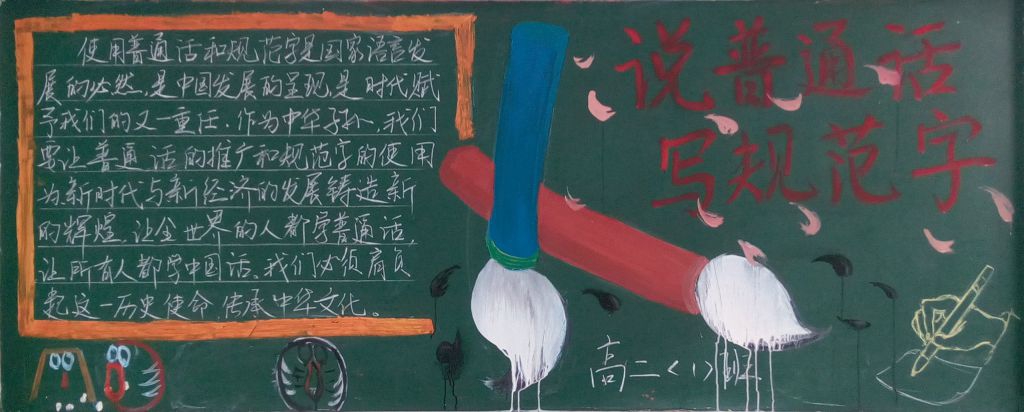 使用普通话和规范字是国家语言发
展的必然,是中国发展的呈现,是时代赋
予我们的又一重任,作为中华子孙,我们
要让普通话的推广和规范字的使用
为新时代与新经济的发展铸造新
的辉煌,让全世界的人都学普通话,
让所有人都学中国话、我们必须肩负
起这一历史使命,传承中华文化。
说普通话
写规范字
高二<1>班